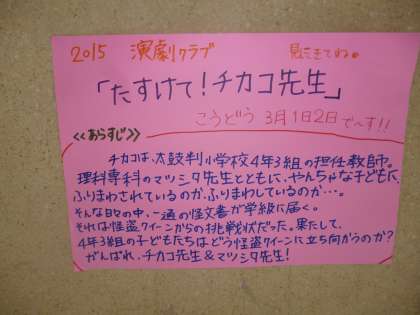 2015 演劇クラブ 見にきてね。
「たすけて！チカコ先生」
こうどう 3月1日2日で〜す!!
<<あらすじ>>
チカコは、太鼓判小学校4年3組の担任教師。
理科専科のマツシタ先生とともに、やんちゃな子どもに、
ふりまわされているのか、ふりまわしているのか…。
そんな日々の中、一通の怪文書が学級に届く。
それは怪盗クイーンからの挑戦状だった。果たして、
4年3組の子どもたちはどう怪盗クイーンに立ち向かうのか？
がんばれ、チカコ先生&マツシタ先生！